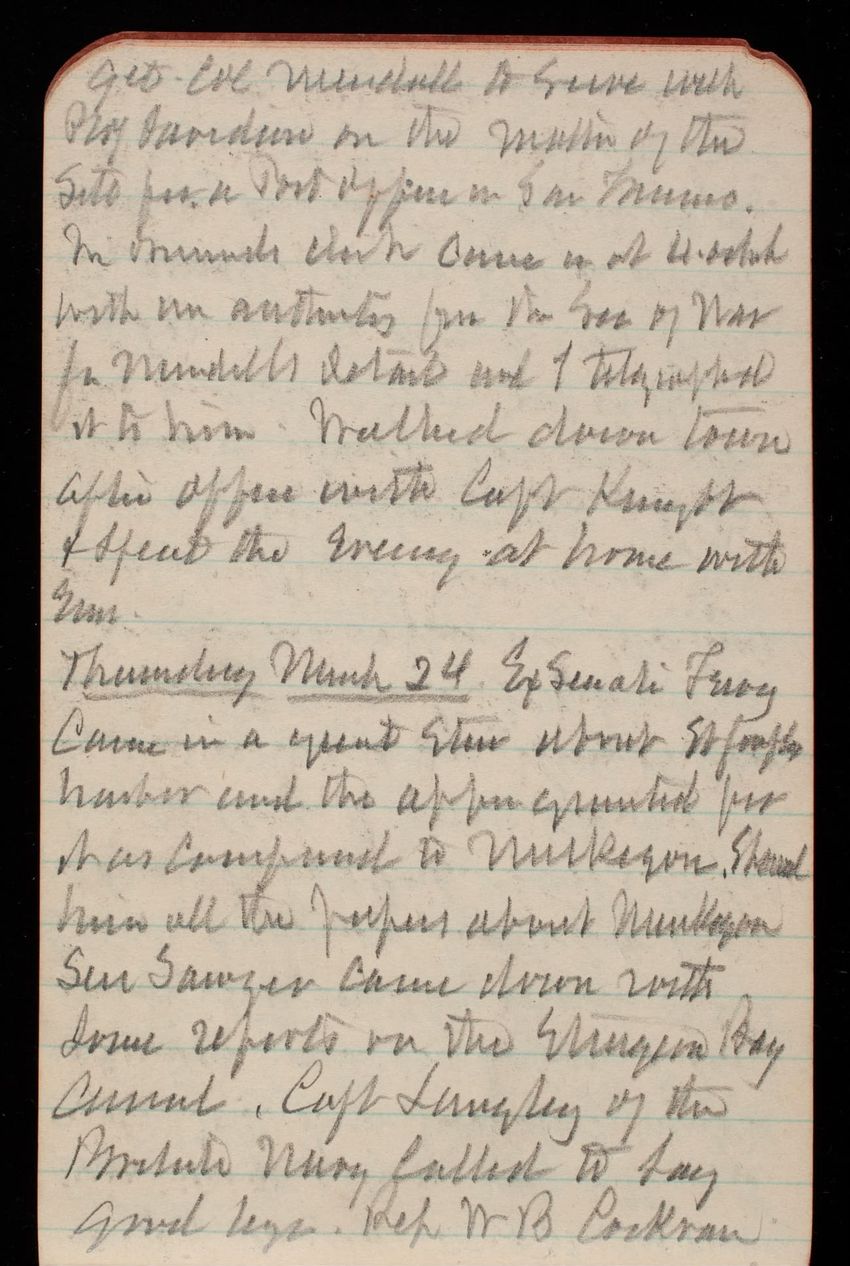 get Col Mendell to serve with
Prof Davidson on the matter of the
Site for a Post Office in San Francisco.
Mr clerk came in at 4 oclock
with an authority from the Sec of War
for Mendells detail and I telegraphed
it to him. Walked down town
after office with Capt Knight
& spent the Evening at home with
Em.
Thursday March 24 Ex Senator Ferry
Came in a great Stew about St Joseph
harbor and the appn granted for
it as compared to Muskegon. Showed
him all the papers about Muskegon
Sen Sawyer came down with
some reports on the Sturgeon Bay
Canal. Capt Langley of the
British Navy called to say
good bye. Rep W B Cockran